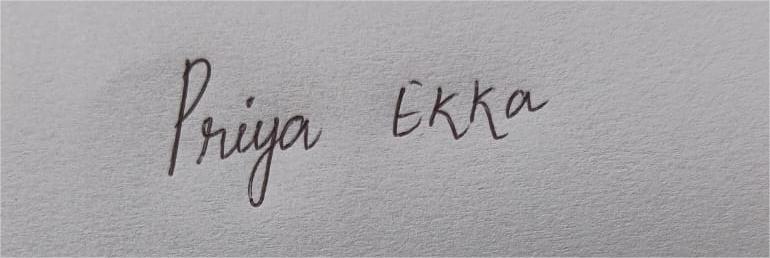 Priya EKKa